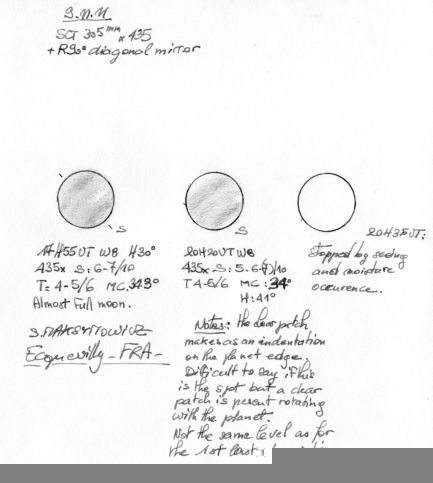 S.N.M
SCT 305mm x 435
+ R90° diagonal mirror
S
S
20H37UT:
W8 H30°
435x S: 6-7/10
T= 4-5/6 MC: 343°
Almost Full moon.
20H20UT W8
435x S: 5-6 /10
T 4-5/6 MC: 34°
H: 41°
stopped by seeing
and moisture
occurence.
S. MAKSYMOWICZ
Ecquevilly - FRA -
Notes: the clear patch
makes as an indentation
on the planet edge.
Difficult to say if this
is the spot but a clear
patch is present rotating
with the planet.
Not the same level as for
the 1st